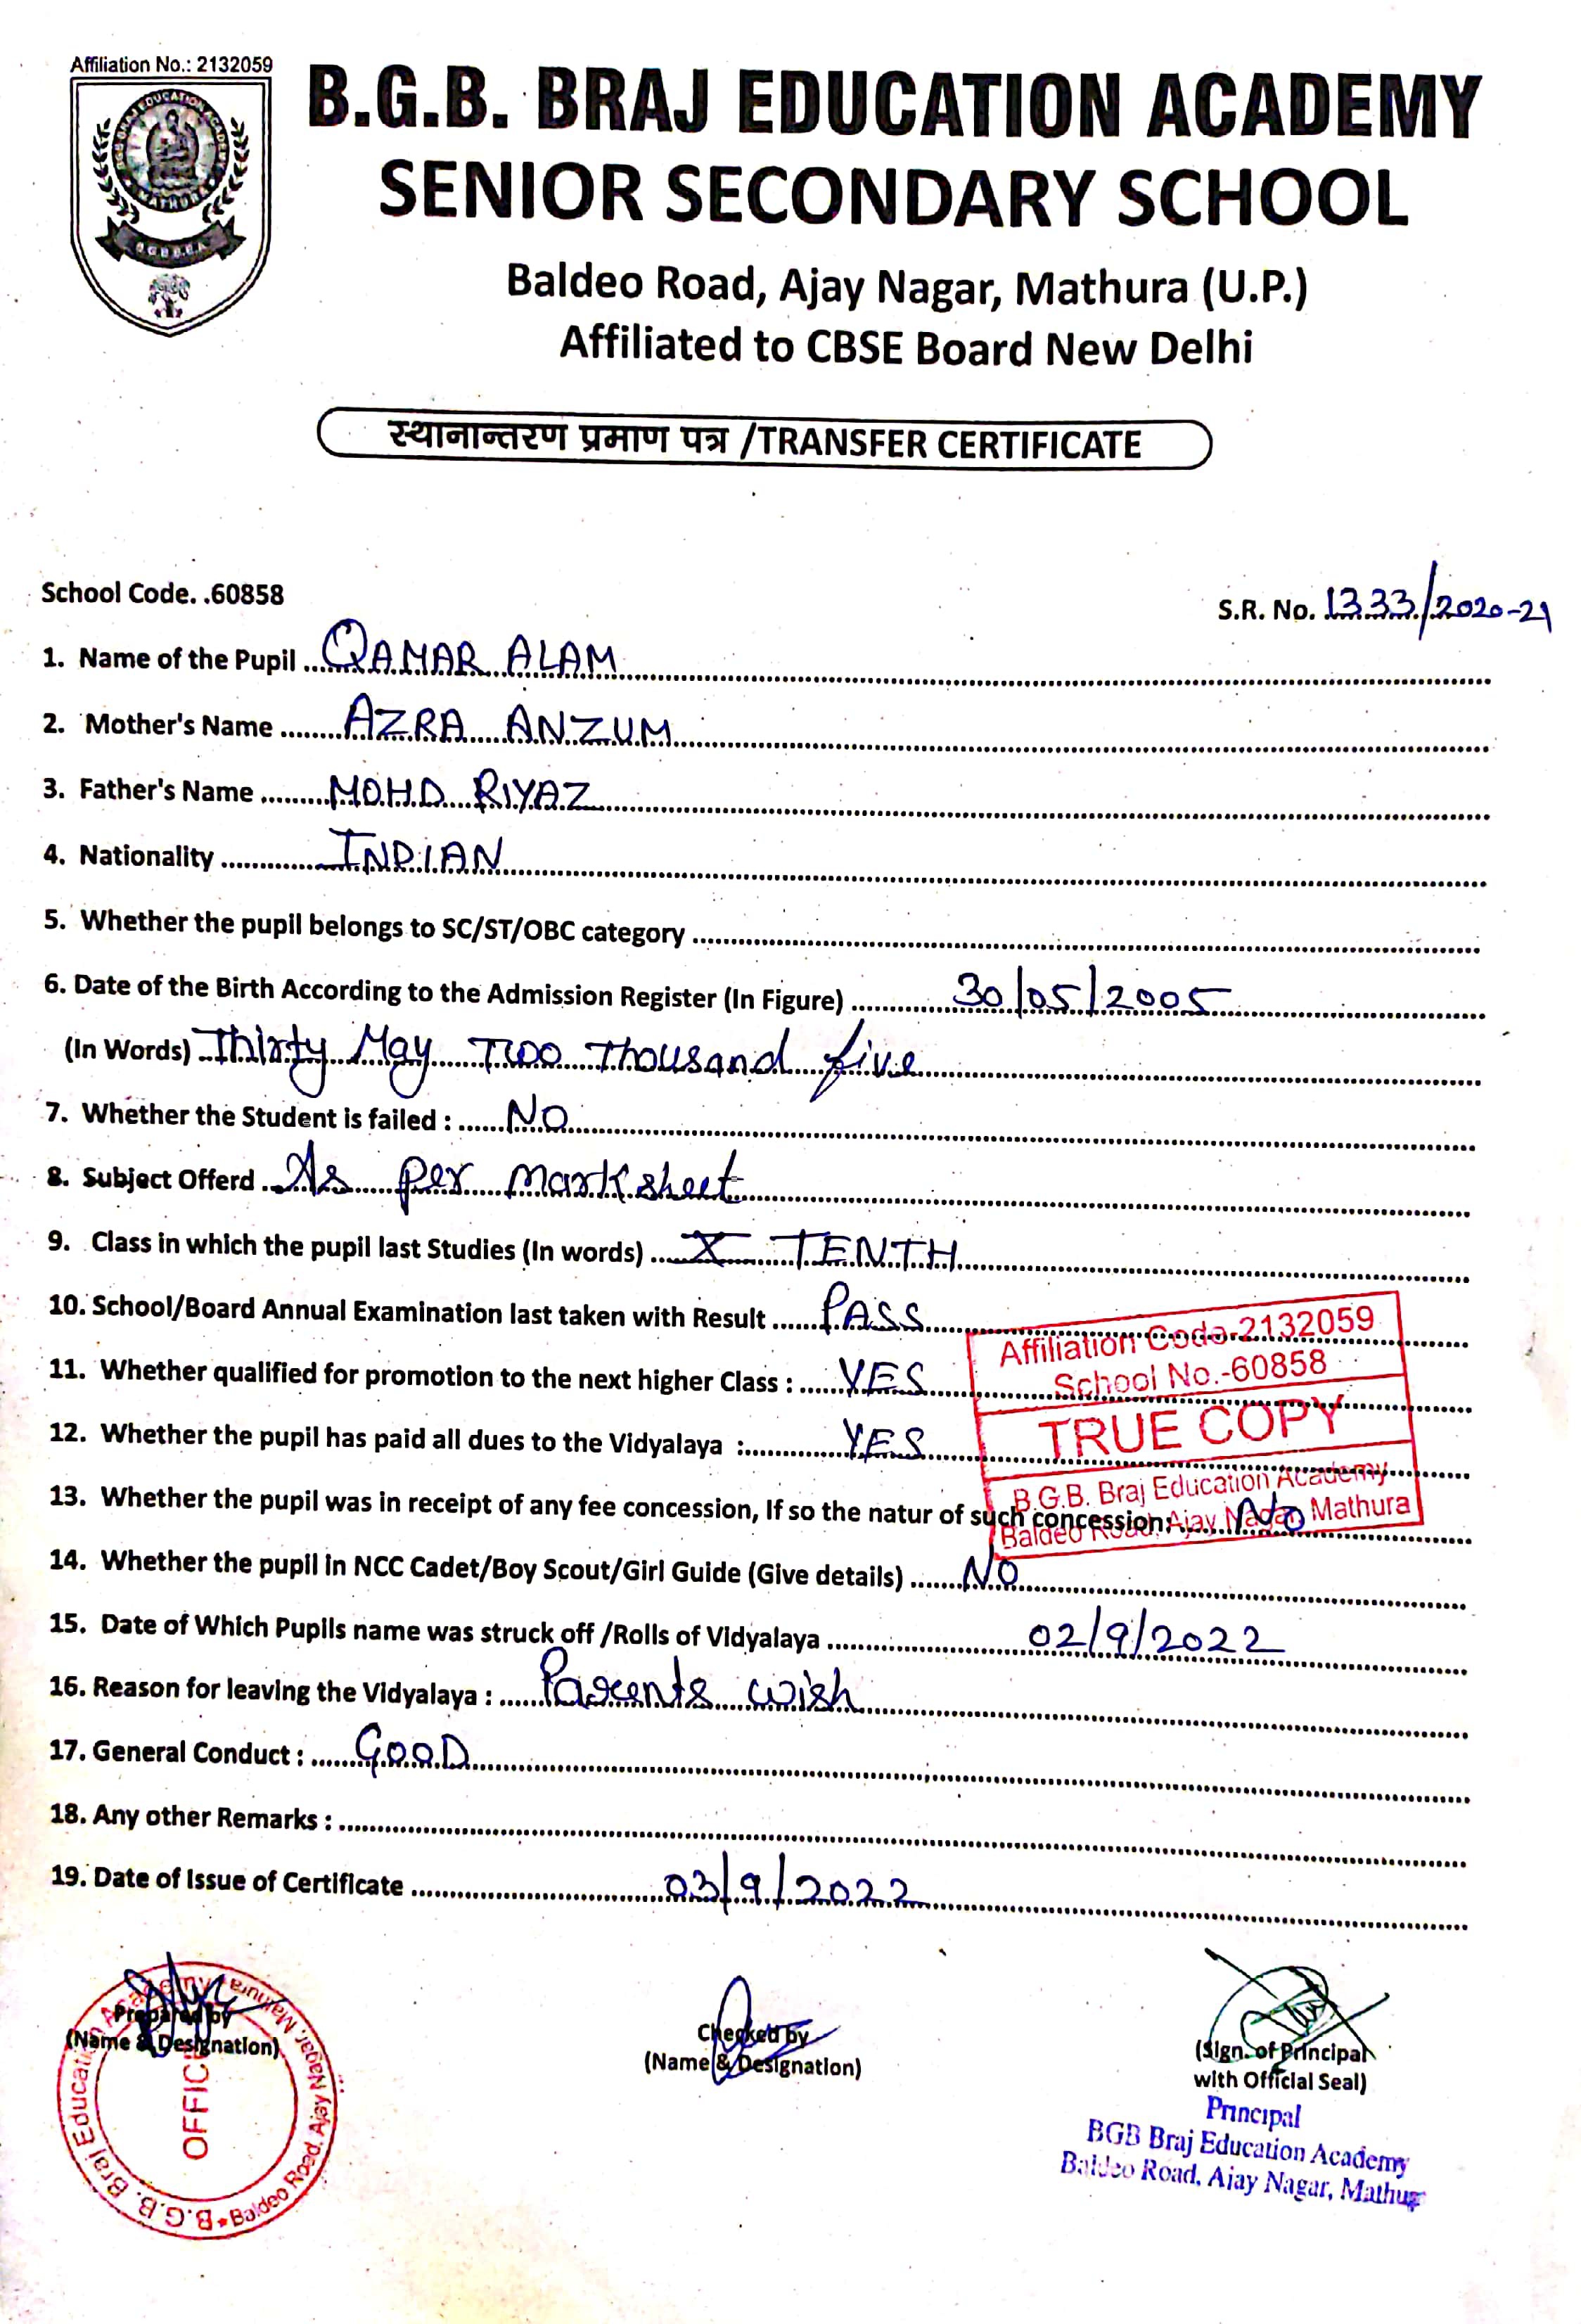 Affiliation No.: 2132059
BGB BRAJ EDUCATION ACADEMY
MATHURA
B.G.B.B.E.A.
B.G.B. BRAJ EDUCATION ACADEMY
SENIOR SECONDARY SCHOOL
Baldeo Road, Ajay Nagar, Mathura (U.P.)
Affiliated to CBSE Board New Delhi
स्थानान्तरण प्रमाण पत्र /TRANSFER CERTIFICATE
School Code. .60858
S.R. No. 1333/2020-21
1. Name of the Pupil QAMAR ALAM
2. Mother's Name AZRA ANZUM
3. Father's Name MOHD RIYAZ
4. Nationality INDIAN
5. Whether the pupil belongs to SC/ST/OBC category
6. Date of the Birth According to the Admission Register (In Figure) 30/05/2005
(In Words) Thirty May Two Thousand five
7. Whether the Student is failed : NO
8. Subject Offerd As per marksheet
9. Class in which the pupil last Studies (In words) X TENTH
10. School/Board Annual Examination last taken with Result PASS
11. Whether qualified for promotion to the next higher Class : YES
12. Whether the pupil has paid all dues to the Vidyalaya : YES
13. Whether the pupil was in receipt of any fee concession, If so the natur of such concession No
14. Whether the pupil in NCC Cadet/Boy Scout/Girl Guide (Give details) NO
15. Date of Which Pupils name was struck off /Rolls of Vidyalaya 02/9/2022
16. Reason for leaving the Vidyalaya : Parents wish
17. General Conduct : GOOD
18. Any other Remarks :
19. Date of Issue of Certificate 03/9/2022
Affiliation Code-2132059
School No.-60858
TRUE COPY
B.G.B. Braj Education Academy
Baldeo Road, Ajay Nagar, Mathura
Prepared by
(Name & Designation)
B.G.B. Braj Education Academy
Baldeo Road, Ajay Nagar, Mathura
Checked by
(Name & Designation)
(Sign. of Principal
with Official Seal)
Principal
BGB Braj Education Academy
Baldeo Road, Ajay Nagar,